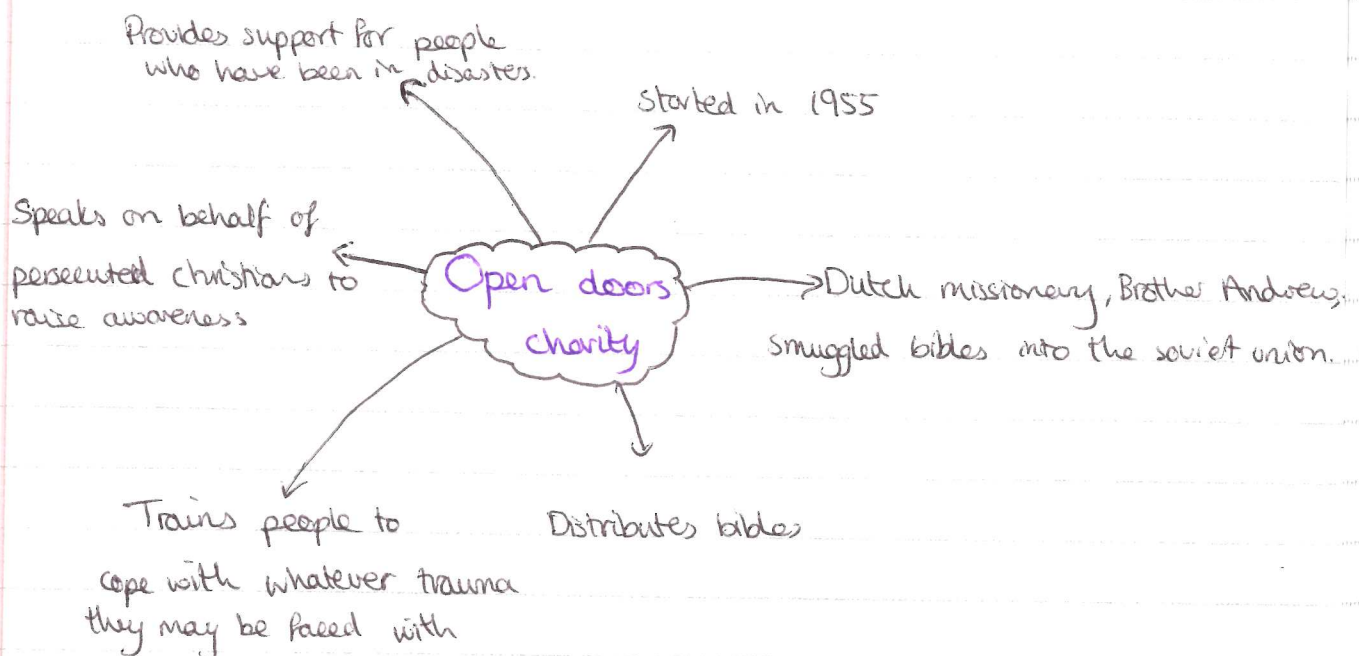 Provides support for people
who have been in disasters.
Started in 1955
Speaks on behalf of
persecuted christians to
raise awareness
Open doors
charity
Dutch missionary, Brother Andrew,
smuggled bibles into the soviet union.
Trains people to
cope with whatever trauma
they may be faced with
Distributes bibles